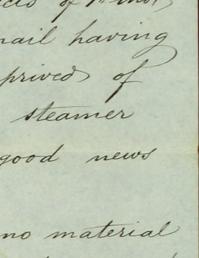 of
mail having
prived of
steamer
good news
no material